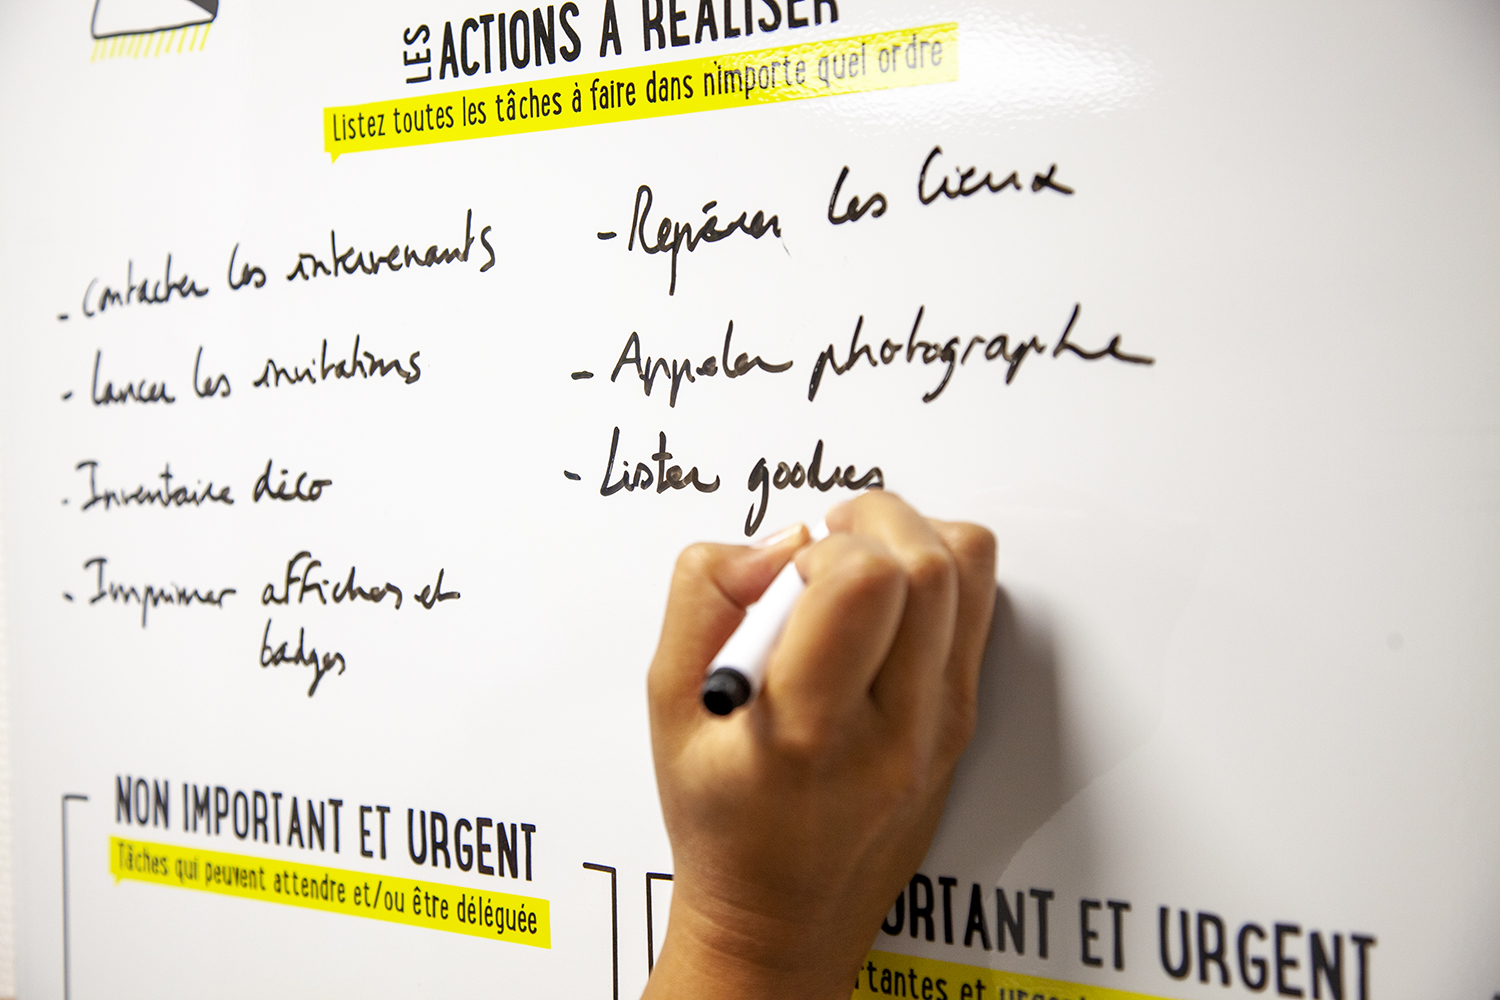 LES ACTIONS A RÉALISER
Listez toutes les tâches à faire dans n'importe quel ordre
- Contacter les intervenants
- Lancer les invitations
- Inventaire déco
- Imprimer affiches et
badges
- Repérer les lieux
- Appeler photographe
- Lister goodies
NON IMPORTANT ET URGENT
Tâches qui peuvent attendre et/ou être déléguée
ORTANT ET URGENT
rtantes et urgent